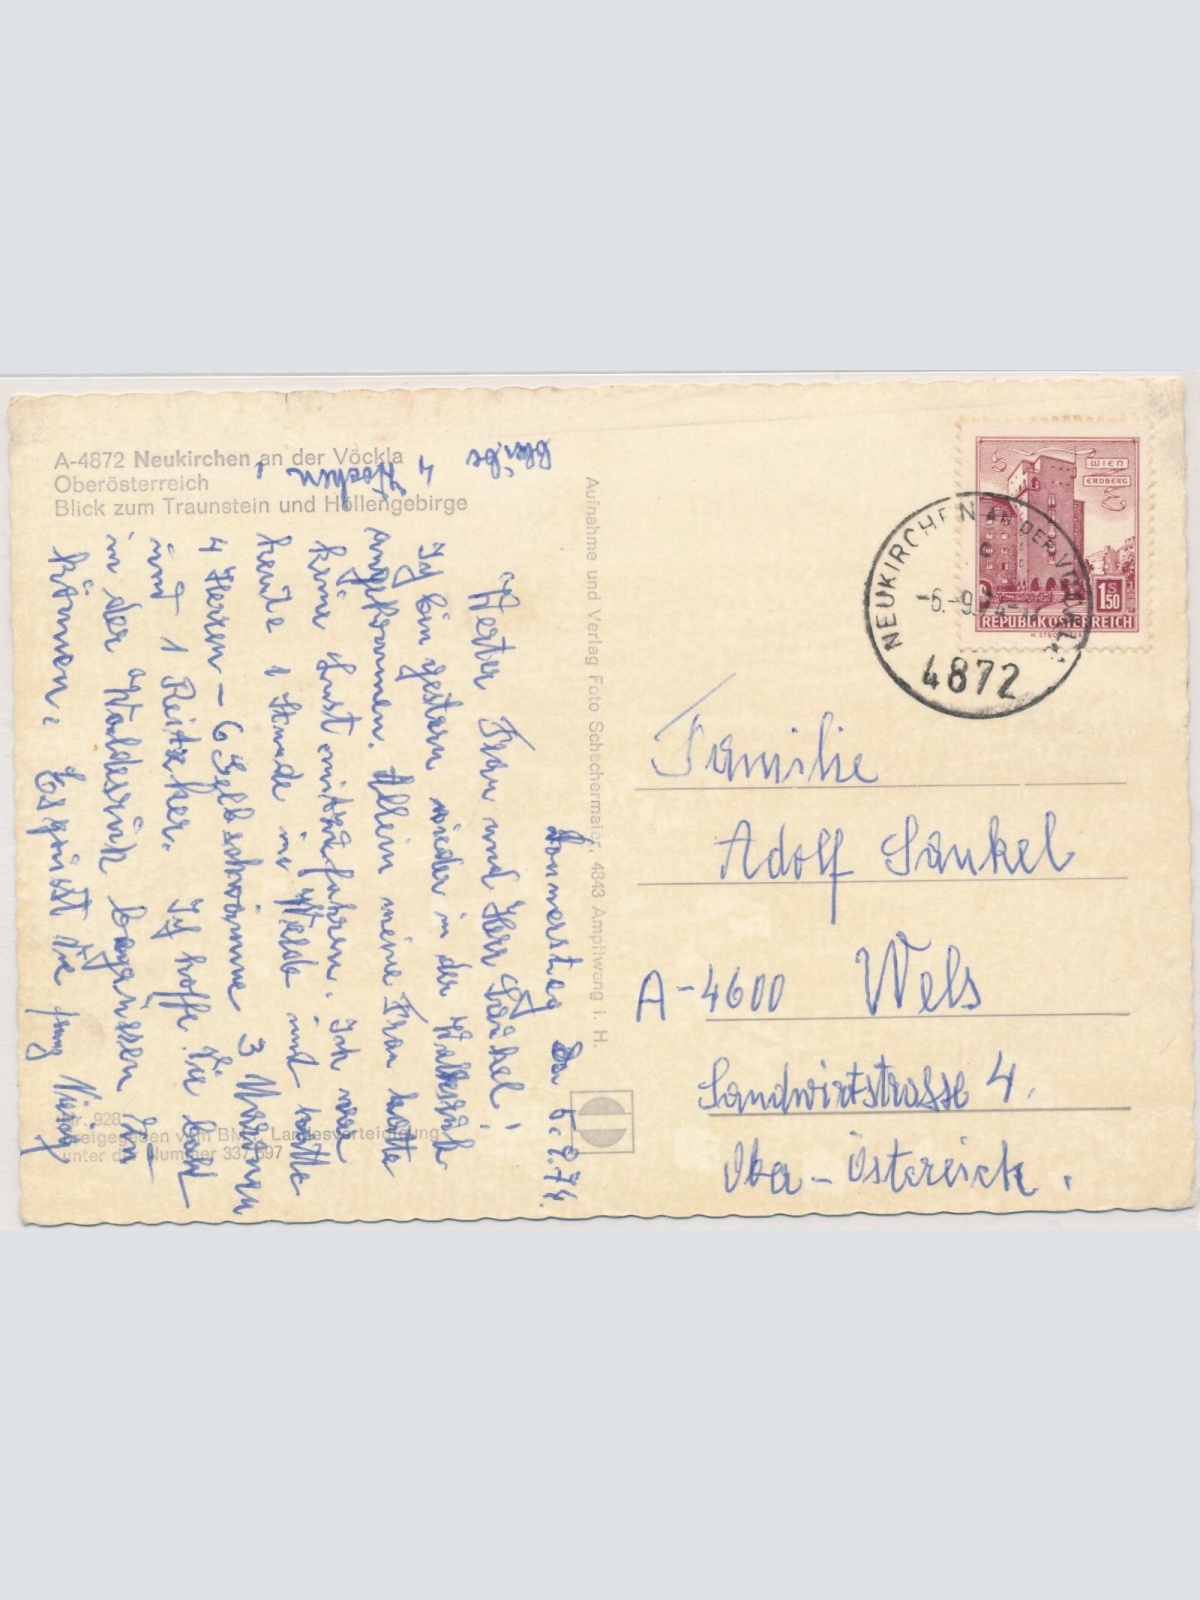 A-4872 Neukirchen an der Vöckla
Oberösterreich
Blick zum Traunstein und Höllengebirge
bleibe
4
Wochen
Donnerstag 5.9.74.
Werter Frau und Herr Sankel!
Ich bin gestern wieder in der
angekommen. Allein meine Frau hatte
keine Lust mitzufahren. Ich war
heute 1 Stunde im Walde und hatte
4 Herren - 6 Gelbschwämme 3
und 1 Reitzker. Ich hoffe Sie bald
in der begrüssen zu
können. Es grüsst Sie
Nr. 928
Freigegeben vom BM f. Landesverteidigung
unter der Nummer 337.597
Aufnahme und Verlag Foto Schachermaier, 4843 Ampflwang i. H.
WIEN
ERDBERG
1S50
REPUBLIK ÖSTERREICH
NEUKIRCHEN AN DER VÖCKLA
-6.-9.74-
4872
Familie
Adolf Sankel
A-4600 Wels
Landwirtstrasse 4.
Ober-Östereich.